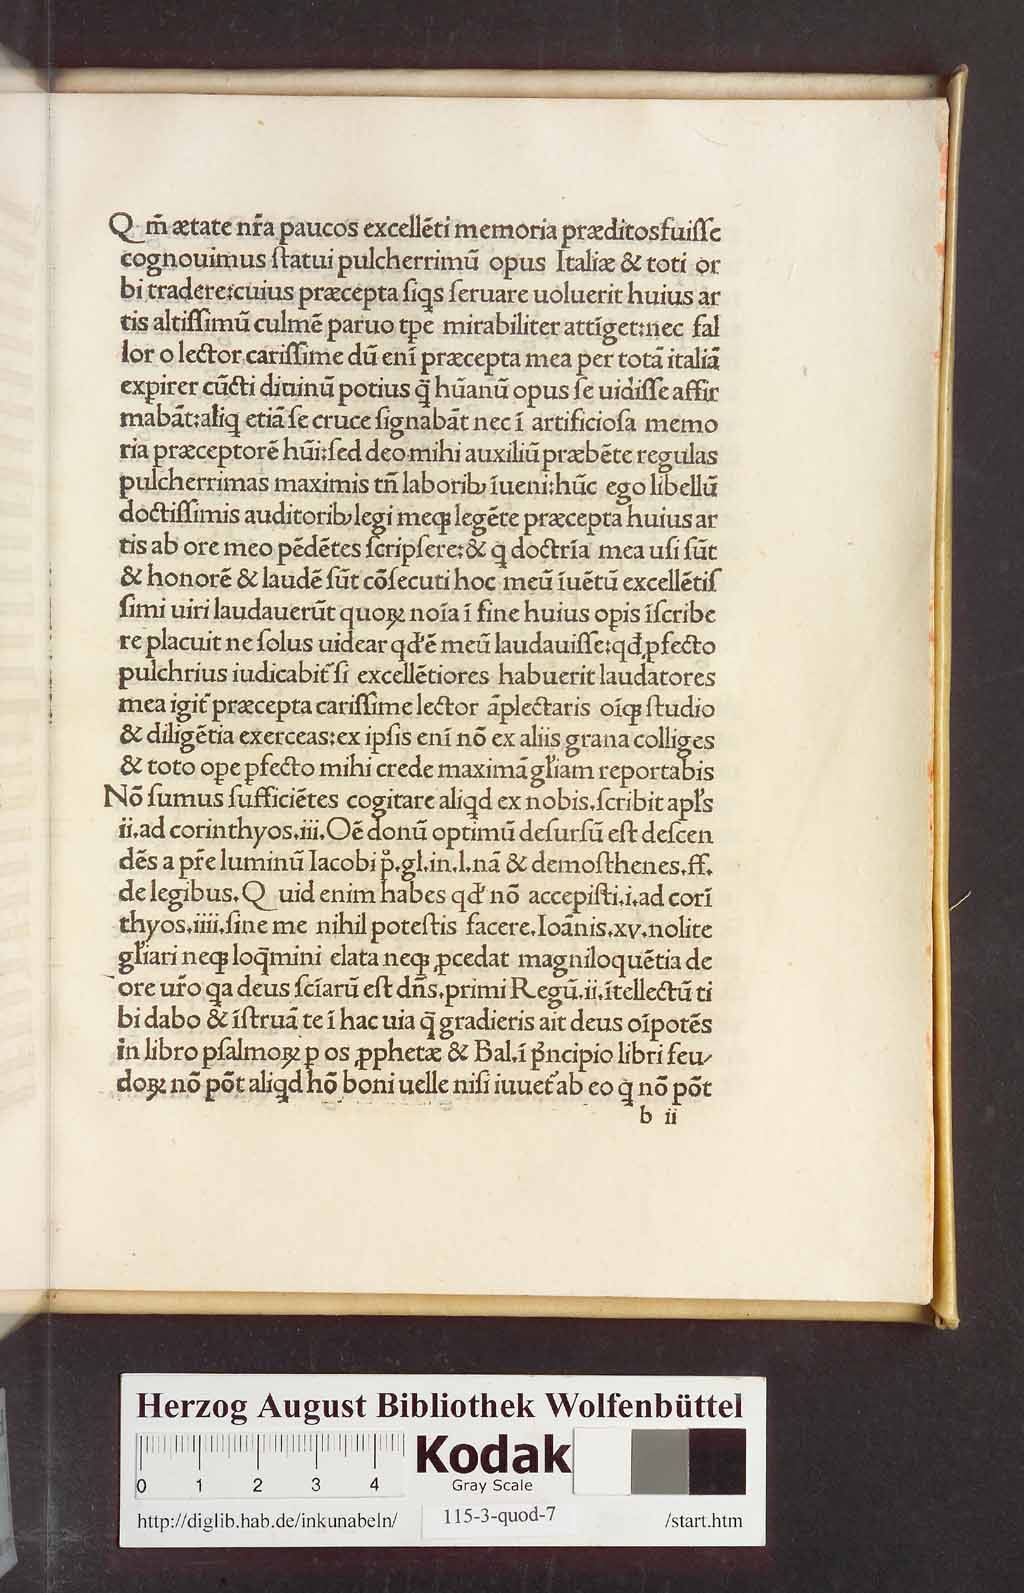 Q m̄ ætate nr̄a paucos excellẽti memoria præditos fuiſſe
cognouimus ſtatui pulcherrimũ opus Italiæ & toti or
bi tradere:cuius præcepta ſiqs ſeruare uoluerit huius ar
tis altiſſimũ culmẽ paruo tꝑe mirabiliter attĩget:nec fal
lor o lector cariſſime dũ enĩ præcepta mea per totã italiã
expirer cũcti diuinũ potius q̃ hũanũ opus ſe uidiſſe affir
mabãt:aliq etiã ſe cruce ſignabãt nec ĩ artificioſa memo
ria præceptorẽ hũi:ſed deo mihi auxiliũ præbẽte regulas
pulcherrimas maximis tñ laborib; ĩueni:hũc ego libellũ
doctiſſimis auditorib; legi meqꝫ legẽte præcepta huius ar
tis ab ore meo pẽdẽtes ſcripſere:& q doctrĩa mea uſi ſũt
& honorẽ & laudẽ ſũt cõſecuti hoc meũ ĩuẽtũ excellẽtiſ
ſimi uiri laudauerũt quoꝝ noĩa ĩ fine huius opis ĩſcribe
re placuit ne ſolus uidear qđ ẽ meũ laudauiſſe:qđ ꝓfecto
pulchrius iudicabit᷑ ſi excellẽtiores habuerit laudatores
mea igit᷑ præcepta cariſſime lector ãplectaris oĩqꝫ ſtudio
& diligẽtia exerceas:ex ipſis enĩ nõ ex aliis grana colliges
& toto oꝑe ꝑfecto mihi crede maximã gl̃iam reportabis
Nõ ſumus ſufficiẽtes cogitare aliqd ex nobis.ſcribit apl̃s
ii.ad corinthyos.iii.Oẽ donũ optimũ deſurſũ eſt deſcen
dẽs a pr̃e luminũ Iacobi p̊.gl.in.l.nã & demoſthenes.ff.
de legibus.Q uid enim habes qđ nõ accepiſti.i.ad corĩ
thyos.iiii.ſine me nihil poteſtis facere.Ioãnis.xv.nolite
gl̃iari neqꝫ loq̃mini elata neqꝫ ꝓcedat magniloquẽtia de
ore ur̃o qa deus ſcĩarũ eſt dñs.primi Regũ.ii.ĩtellectũ ti
bi dabo & ĩſtruã te ĩ hac uia q̃ gradieris ait deus oĩpotẽs
in libro pſalmoꝝ ꝑ os ꝓphetæ & Bal.ĩ pͥncipio libri feu/
doꝝ nõ põt aliqd hõ boni uelle niſi iuuet᷑ ab eo q nõ põt
b ii
Herzog August Bibliothek Wolfenbüttel
0 1 2 3 4
Kodak
Gray Scale
http://diglib.hab.de/inkunabeln/ 115-3-quod-7 /start.htm